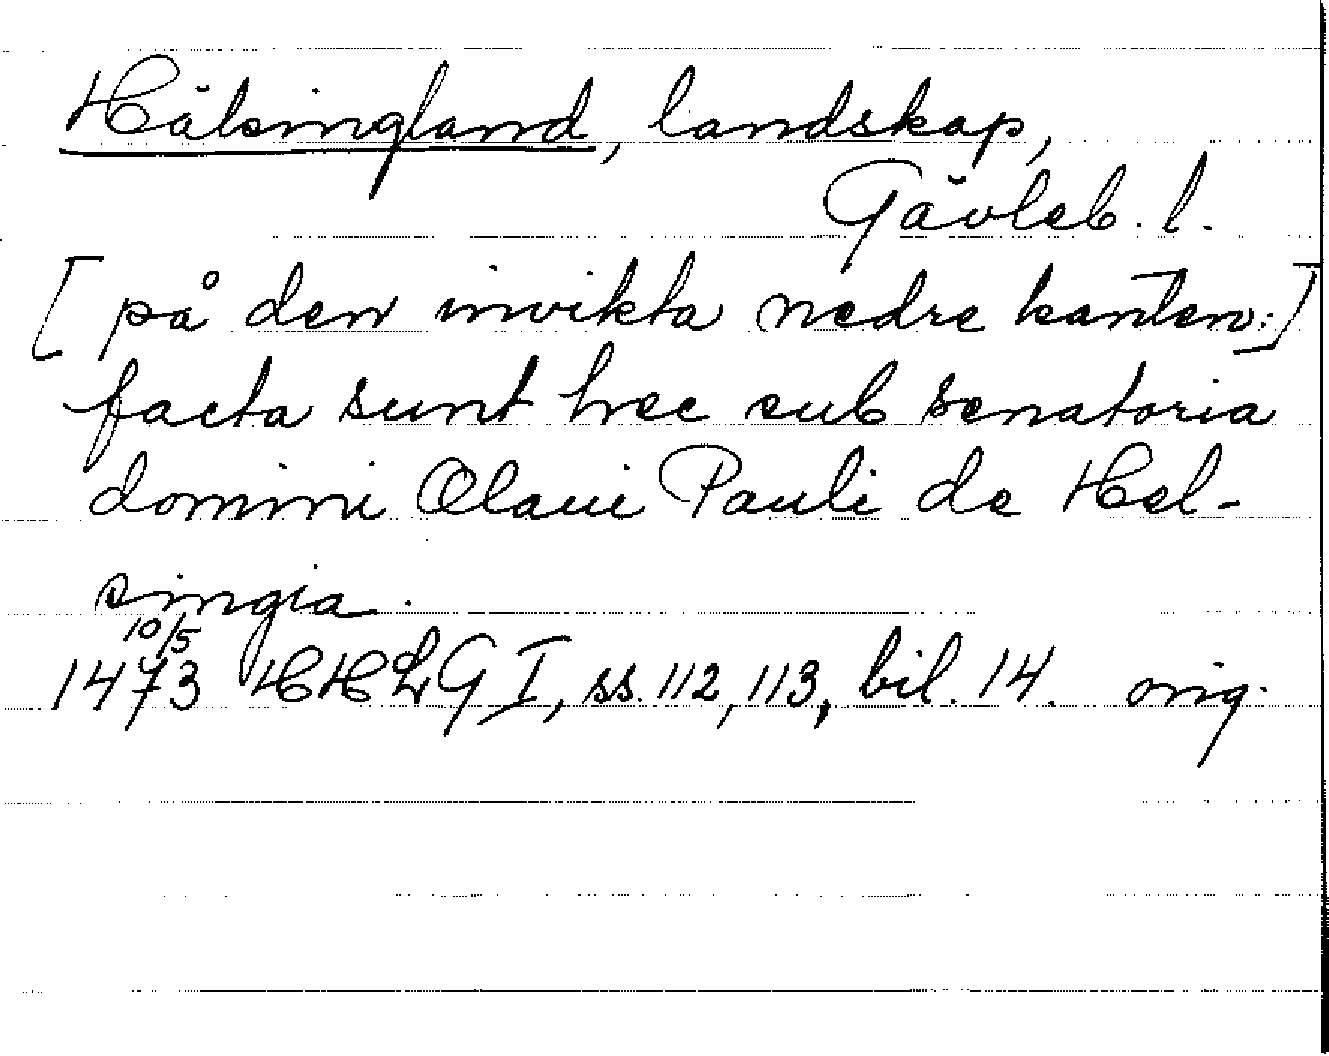 Hälsingland, landskap,
Gävleb. l.
[på den invikta nedre kanten:]
facta sunt hec sub senatoria
domini Olaui Pauli de Hel-
singia.
10/5
1473 HHLG I, ss. 112, 113, bil. 14. orig.